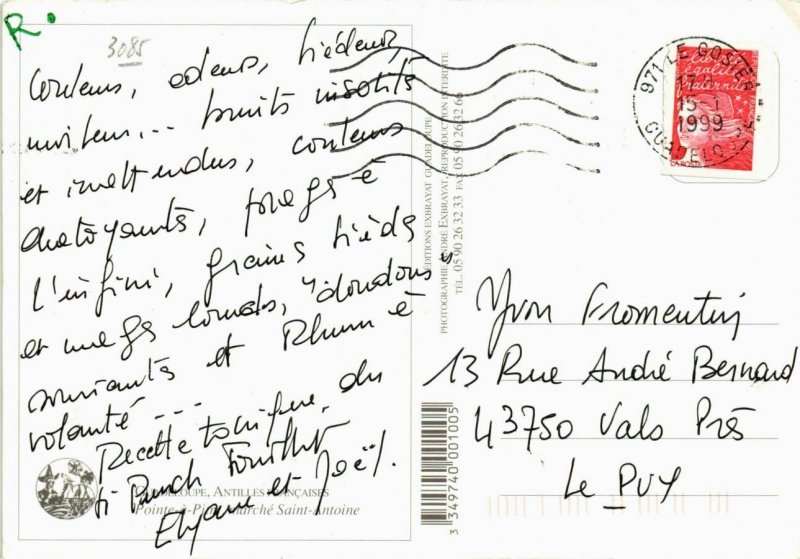 R.
3085
Couleurs, odeurs, tiédeurs,
moiteur... bruits insolites
et inattendus, couleurs
chatoyantes, plages à
l'infini, grains tièdes
et nuages lourds, "doudous"
souriants et Rhum à
volonté...
Recette torride, du
ti Punch
et Joël.
GUADELOUPE, ANTILLES FRANÇAISES
Pointe-à-Pitre, Marché Saint-Antoine
EDITIONS EXBRAYAT GUADELOUPE
PHOTOGRAPHIE ANDRÉ EXBRAYAT - REPRODUCTION INTERDITE
TÉL. 05 90 26 32 33 FAX 05 90 26 32 66
3 349740 001005
971 LE GOSIER
15-1
1999
GUADELOUPE
Liberté
égalité
fraternité
LA POSTE
Yvon Fromentin
13 Rue André Bernard
43750 Vals Près
Le PUY